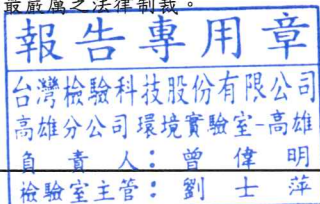 最嚴厲之法律制裁。
報告專用章
台灣檢驗科技股份有限公司
高雄分公司環境實驗室-高雄
負責人：曾偉明
檢驗室主管：劉士萍